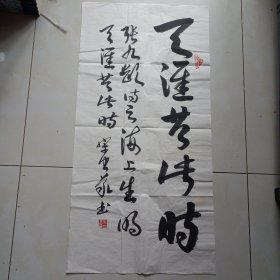 天涯共此时
张九龄诗云海上生明
天涯共此时
书